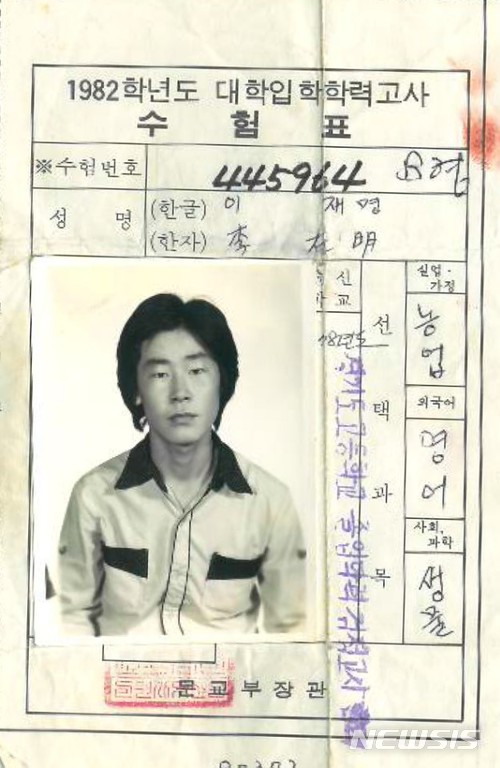 1982학년도 대학입학학력고사
수 험 표
※수험번호 445964
성 명 (한글) 이 재 명
(한자) 李 在 明
출신
학교
'82년도
경기도 고등학교 졸업학력 검정고사
선 택 과 목
실업·
가정
농업
외국어
영어
사회,
과학
생물
문교부장관
NEWSIS